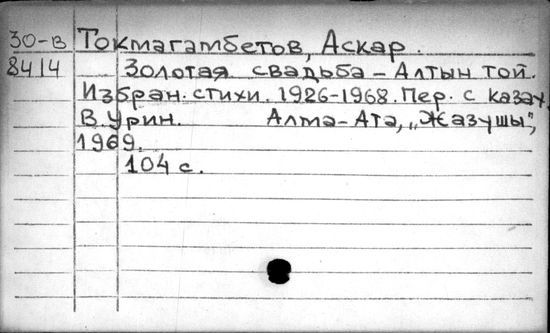 30-в Токмагамбетов, Аскар.
8414 Золотая свадьба – Алтын той.
Избран. стихи. 1926-1968. Пер. с казах.
В. Урин. Алма-Ата, „Жазушы”,
1969.
104 с.